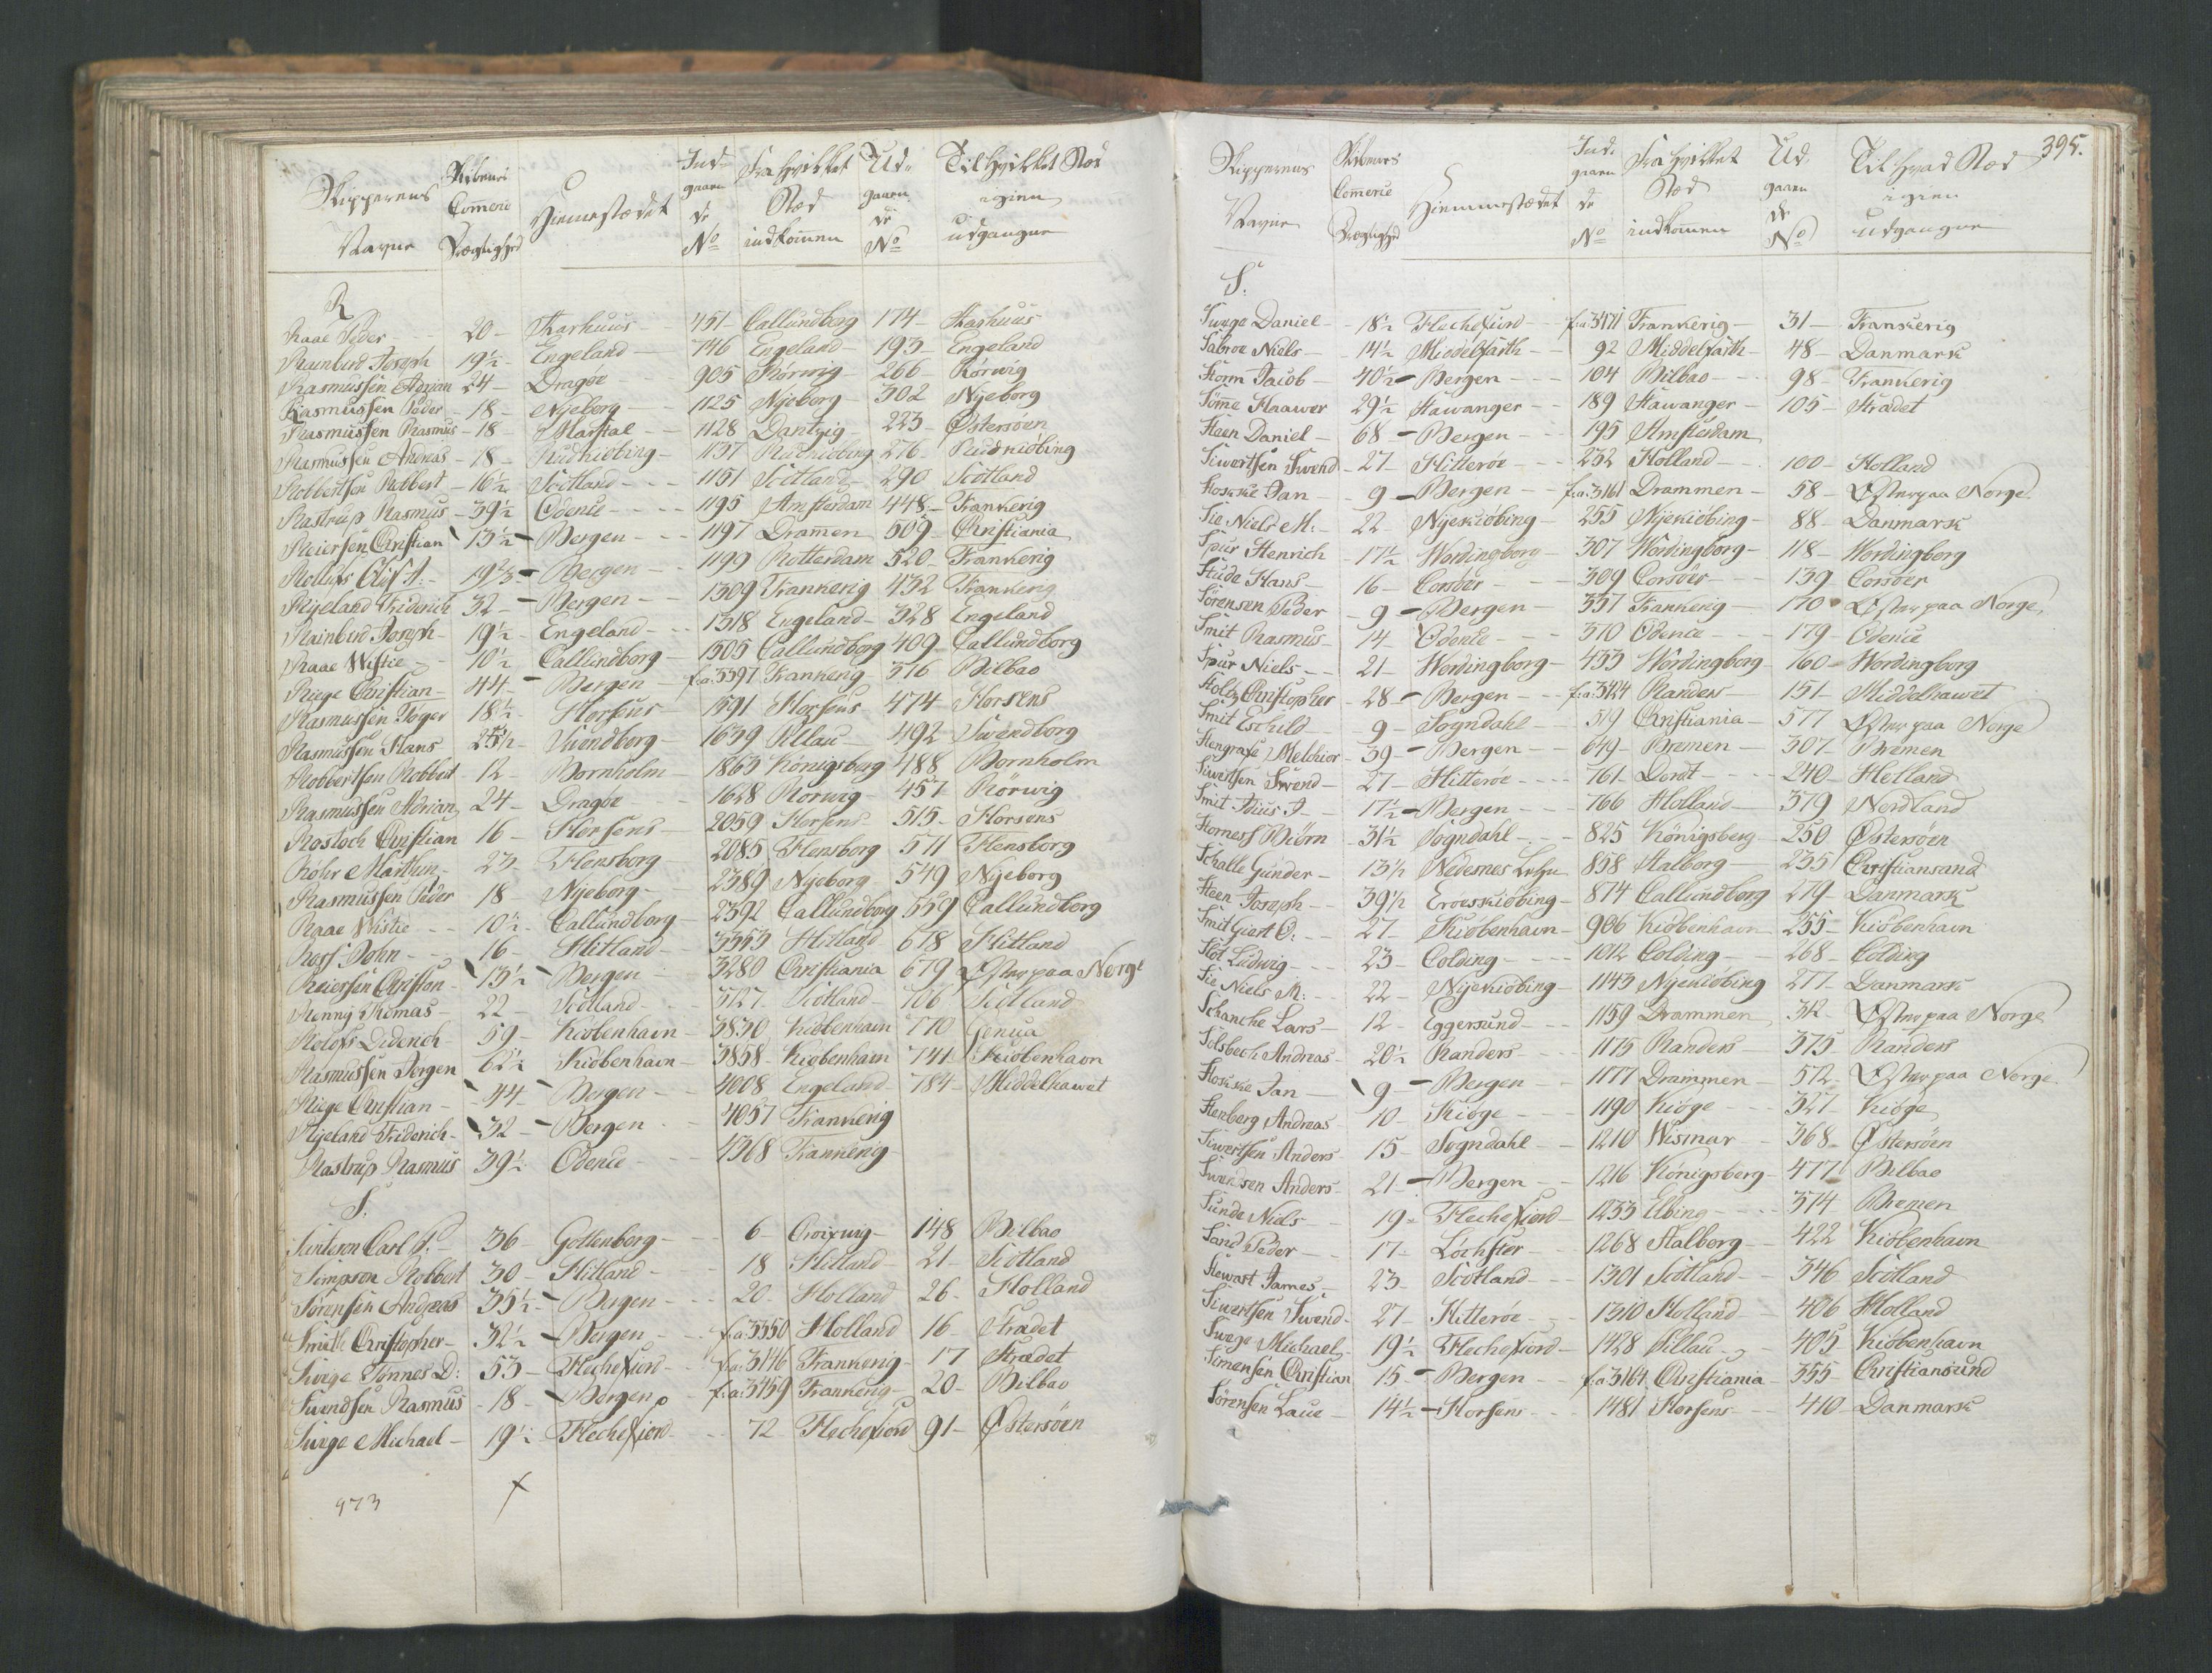 Skipperens Navne | Skibenes Commerce Drægtighed | Hiemmestædet | Indgaaende No | Fra hvilket Stæd indkommen | Udgaaende No | Til hvilket Stæd igien udgangne
R
Raae Peder - 20 - Aarhuus - 451 - Callundborg 174 - Aarhuus
Rainbird Joseph 19½ - Engeland - 746 Engeland - 193 - Engeland
Rasmussen Adrian 24 - Dragöe - 905 Rörwig - 266 - Rörwig
Rasmussen Peder - 18 - Nyeborg - 1125 Nyeborg - 302 Nyeborg
Rasmussen Rasmus - 18 - Marstal - 1128 Dantzig - 223 - Østersöen
Rasmussen Andreas - 18 - Rudkiöbing - 1137 Rudkiöbing 276 - Rudkiöbing
Robbertsen Robbert - 16½ - Scotland - 1151 Scotland - 290 Scotland
Rastrup Rasmus - 39½ - Odence - 1195 Amsterdam 448 - Frankerig
Reiersen Christian 13½ - Bergen - 1197 Drammen 609 - Christiania
Rollufs Oluf A: - 19⅔ - Bergen - 1199 Rotterdam 520 - Frankerig
Ryeland Friderich 32 - Bergen - 1309 Frankerig 432 Frankerig
Rainbird Joseph - 19½ - Engeland - 1318 Engeland - 328 Engeland
Raae Wistie - 10½ Callundborg - 1505 Callundborg 409 - Callundborg
Riege Christian - 44 - Bergen - f:a:3397 Frankerig 316 Bilbao
Rasmussen Töger 18½ - Horsens - 1591 Horsens 474 - Horsens
Rasmussen Hans 25½ - Swendborg - 1639 Pillau - 492 - Swendborg
Robbertsen Robbert - 12 - Bornholm - 1865 Königsberg 488 Bornholm
Rasmussen Adrian 24 - Dragöe - 1628 Rörwig - 457 Rörwig
Rostock Christian 16 - Horsens - 2059 Horsens 515 - Horsens
Röhr Marthin - 23 - Flensborg - 2085 Flensborg 571 Flensborg
Rasmussen Peder 18 - Nyeborg - 2389 Nyeborg 549 Nyeborg
Raae Wistie - 10½ - Callundborg - 2392 Callundborg 559 Callundborg
Ross John - 16 - Hitland - 3353 Hitland 678 Hitland
Reiersen Christian - 13½ - Bergen - 3280 Christiania 679 Østenpaa Norge
Renny Thomas - 22 - Scotland - 3727 Scotland - 706 Scotland
Rolofs Diderich - 59 - Kiobenhavn - 3830 Kiobenhavn 770 Genua
Rasmussen Jörgen 62½ Kiobenhavn - 3858 Kiobenhavn 741 Kiobenhavn
Riege Christian - 44 - Bergen - 4008 Engeland - 784 - Middelhawet
Ryeland Friderich - 32 - Bergen - 4057 Frankerig
Rastrup Rasmus 39½ Odence - 4368 Frankerig
S.
Carl P: - 36 - Gottenborg - 6 - Croixvig - 148 Bilbao
Simpson Robbert 30 - Hitland - 18 Hitland - 21 - Scotland
Sörensen Andreas 35½ - Bergen - 20 - Holland 26 - Holland
Smith Christopher - 32½ - Bergen - f:a:3350 Holland 16 - Stradet
Swege Tönnes D: - 53 - Flechefiord - f:a:3446 Frankerig - 17 Stradet
Swendsen Rasmus - 18 - Bergen - f:a:3459 Frankerig - 20 - Bilbao
Swege Michael - 19½ - Flechefiord - 72 Flechefiord 91 - Østersöen
973

395.
Skipperens Navne | Skibenes Commerce Drægtighed | Hiemmestædet | Indgaaende No | Fra hvilket Stæd indkommen | Udgaaende No | Til hvad Stæd igien udgangne
S.
Swege Daniel - 18½ Flechefiord - f:a:3471 Frankerig - 31 - Frankerig
Sabroe Niels - 14½ Middelfarth - 92 Middelfarth - 48 - Danmark
Storm Jacob - 40½ - Bergen - 104 Bilbao - 98 - Frankerig
Sömme Haawer 29½ Stawanger - 189 Stawanger - 105 - Stradet
Steen Daniel - 68 - Bergen - 195 Amsterdam
Siwertsen Swend - 27 - Hitteröe - 232 Holland - 100 - Holland
Jan - 9 - Bergen - f:a:3161 Drammen - 58 - Østenpaa Norge
Sie Niels M: - 22 - Nyekiöbing - 255 Nyekiöbing - 88 - Danmark
Spur Henrich - 17½ Wordingborg - 307 Wordingborg - 118 - Wordingborg
Stude Hans - 16 - Corsöer - 309 Corsöer - 139 Corsöer
Sörensen Peder - 9 - Bergen - 337 Frankerig - 170 Østenpaa Norge
Smit Rasmus - 14 - Odence - 370 Odence - 179 - Odence
Spur Niels - 21 - Wordingborg - 433 Wordingborg - 160 - Wordingborg
Stoltz Christopher - 28 - Bergen - f:a:3424 Randers - 151 - Middelhawet
Smit Eschild - 9 - Sogndahl - 519 Christiania - 577 Østenpaa Norge
Stengrafe Melchior - 39 - Bergen - 649 - Bremen - 307 - Bremen
Siwertsen Swend - 27 - Hitteröe - 761 - Dordt - 240 - Holland
Smit Titus J - 17½ - Bergen - 766 Holland - 379 Nordland
Storness Biörn - 31½ Sogndahl - 825 Königsberg - 250 Østersöen
Schalle Gunder - 13½ Nedernes Lehn - 858 Aalborg - 235 Christiansand
Steen Joseph - 39½ Eröeskiöbing - 874 Callundborg 279 - Danmark
Smit Geert O: - 27 - Kiöbenhavn - 906 Kiöbenhavn - 255 - Kiöbenhavn
Slot Ludwig - 23 - Colding - 1012 Colding - 268 - Colding
Sie Niels M: - 22 - Nyekiöbing - 1143 Nyekiöbing 277 - Danmark
Schanche Lars - 12 - Eggersund - 1159 Drammen 312 - Østenpaa Norge
Sölsbech Andreas - 20½ Randers - 1175 Randers - 375 - Randers
Jan - 9 - Bergen - 1177 Drammen - 572 - Østenpaa Norge
Stenberg Andreas 10 - Kiöge - 1190 Kiöge - 327 - Kiöge
Siwertsen Anders 15 - Sogndahl - 1210 Wismar - 368 - Østersöen
Swendsen Anders - 21 - Bergen - 1216 Königsberg - 477 Bilbao
Sunde Niels - 19 - Flechefiord - 1233 Elbing - 374 - Bremen
Sand Peder - 17 - Löchster - 1268 Aalborg - 422 Kiöbenhavn
Stewart James - 23 - Scotland - 1301 Scotland - 346 Scotland
Siwertsen Swend - 27 - Hitteröe - 1310 Holland - 406 Holland
Swege Michael - 19½ Flechefiord - 1428 Pillau - 405 - Kiöbenhavn
Simensen Christian 15 - Bergen - f:a:3164 Christiania - 355 - Christiansund
Sörensen Laue - 14½ - Horsens - 1481 Horsens - 410 - Danmark